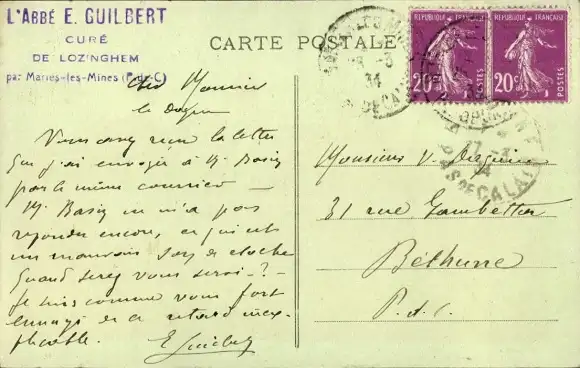 L'ABBÉ E. GUILBERT
CURÉ
DE LOZINGHEM
par Marles-les-Mines (P.-de-C.)
CARTE POSTALE
RÉPUBLIQUE FRANÇAISE
20c
POSTES
RÉPUBLIQUE FRANÇAISE
20c
POSTES
34
PAS DE CALAIS
Cher Monsieur
le Doyen
Vous avez reçu la lettre
que j'ai envoyée à M. Basin
par le même courrier —
M. Basin ne m'a pas
répondu encore, ce qui est
un mauvais son de cloche
Quand serez vous servi - ? -
Je suis comme vous fort
ennuyé de ce retard inex-
plicable.
E Guilbert
Monsieur
31 rue Gambetta
Béthune
P. d. C.